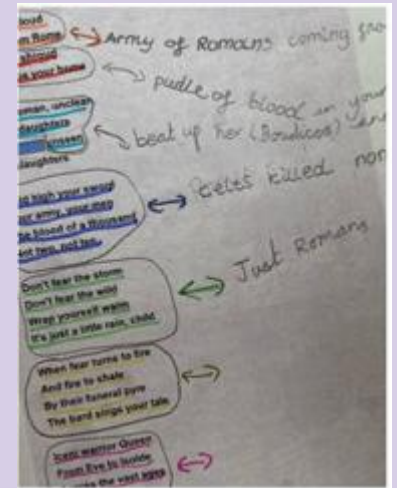 loud
m Rome
shroud
your home
Army of Romans coming
pudle of blood in your
man, unclean
daughters
unseen
daughters
beat up her (Boudicca)
high your sword
army, your men
blood of a thousand
not two, not ten.
celts killed
Just Romans
Don't fear the storm
Don't fear the wild
Wrap yourself warm
It's just a little rain, child.
When fear turns to fire
And fire to shale
By their funeral pyre
The bard sings your tale.
Iceni warrior Queen
From fire to
the vast ages